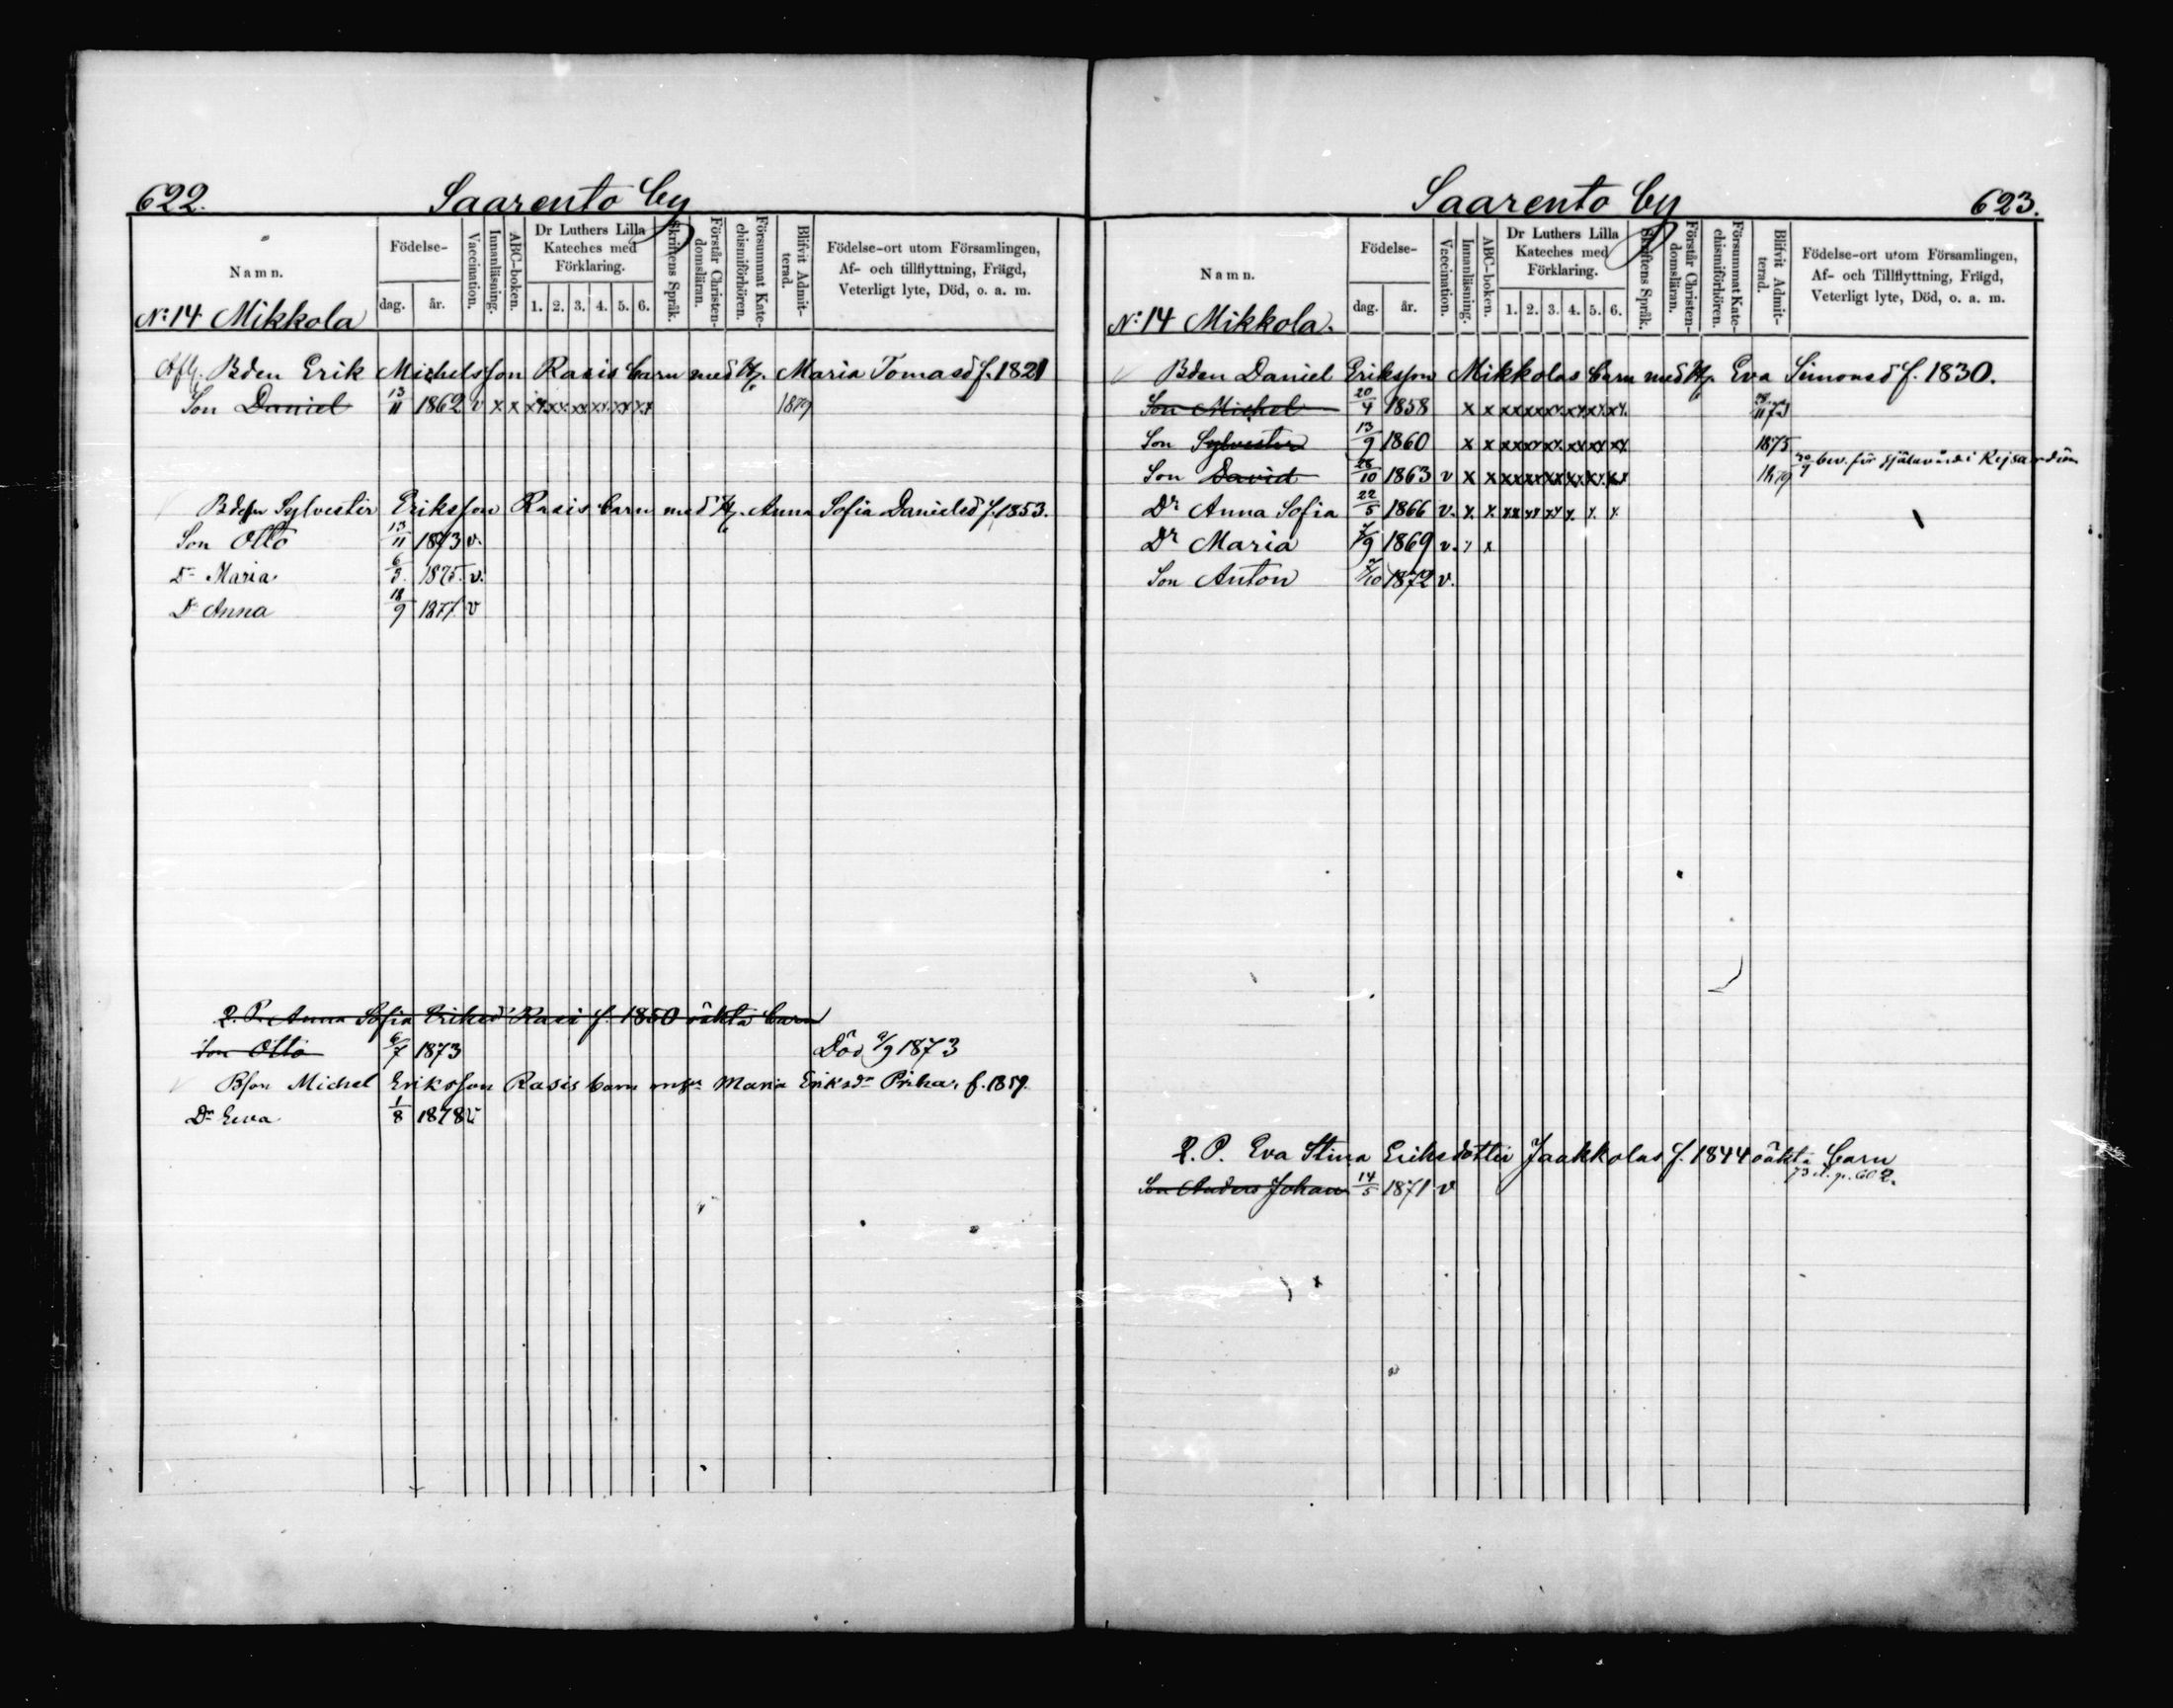 622. Saarento by
Namn. Födelse- dag. år. Vaccination. Innanläsning. ABC-boken. Dr Luthers Lilla Kateches med Förklaring. 1. 2. 3. 4. 5. 6. Skriftens Språk. Förstår Christendomsläran. Försummat Katechismiförhören. Blifvit Admitterad. Födelse-ort utom Församlingen, Af- och tillflyttning, Frägd, Veterligt lyte, Död, o. a. m.
N:14 Mikkola
Afl. Bden Erik Michelsson Rasis barn med H. Maria Tomasd f. 1821
Son Daniel 13/11 1862 v x x xx xx xx xx xx xx 1879
Bdesson Sylvester Eriksson Rasis barn med H. Anna Sofia Danielsd f. 1853.
Son Otto 13/11 1873 v.
Dr Maria. 6/9. 1875. v.
Dr Anna 18/9 1877. v
P. Anna Sofia Eriksd Rasi f. 1850 oäkta barn
Son Otto 6/7 1873 Död /9 1873
Bson Michel Eriksson Rasis barn Maria Eriksdr f. 1859.
Dr Eva 1/8 1878 v
Saarento by 623.
Namn. Födelse- dag. år. Vaccination. Innanläsning. ABC-boken. Dr Luthers Lilla Kateches med Förklaring. 1. 2. 3. 4. 5. 6. Skriftens Språk. Förstår Christendomsläran. Försummat Katechismiförhören. Blifvit Admitterad. Födelse-ort utom Församlingen, Af- och Tillflyttning, Frägd, Veterligt lyte, Död, o. a. m.
N:14 Mikkola.
Bden Daniel Eriksson Mikkolas barn med H. Eva Simonsd f. 1830.
Son Michel 20/4 1858 x x xx xx xx xx xx xx.
Son Sylvester 13/9 1860 x x xx xx xx xx xx xx 1875
Son David 28/10 1863 v x x xx xx xx xx xx xx 1879 bev. för själavård i
Dr Anna Sofia 22/5 1866 v. x. x. xx xx xx x. x. x
Dr Maria /9 1869 v. x x
Son Anton /10 1872 v.
P. Eva Stina Eriksdotter Jaakkolas f. 1844 oäkta barn
Son Anders Johan 14/5 1871 v p. 602.